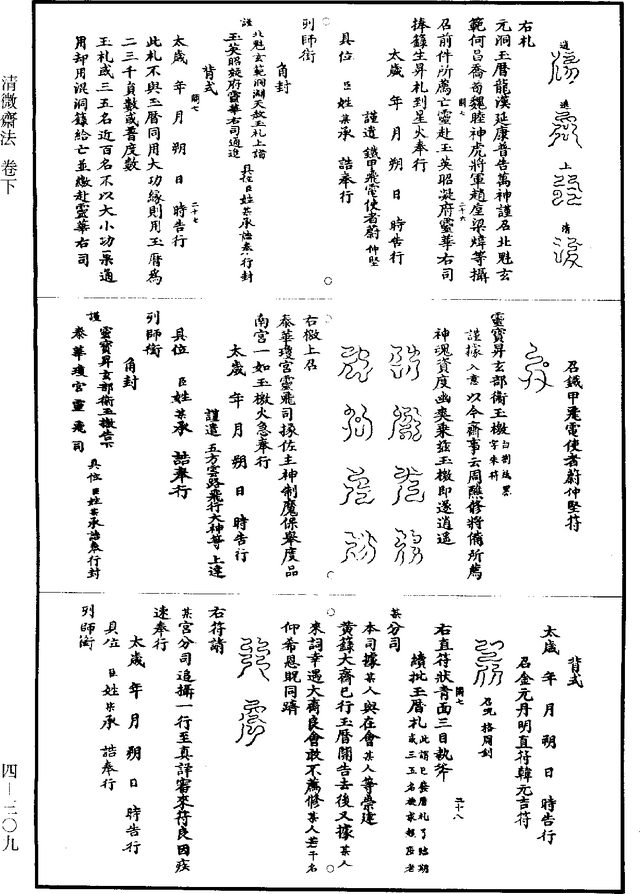 清微齋法 卷下
四-三〇九
右札
元洞玉曆龍漢延康普告萬神謹召北魁玄
範何昌喬荀魏膛神虎將軍趙虛梁煒等攝
召前件所薦亡靈赴玉英昭凝府靈華右司
捧籙生昇札到星火奉行
太歲 年 月 朔 日 時告行
謹遣 鐵甲飛電使者蔚仲堅
具位 臣姓某承 誥奉行
列師銜
角封
謹 北魁玄範洞湖天赦玉札上請
玉英昭凝府靈華右司通進
具位臣姓某承誥奉行封
背式
太歲 年 月 朔 日 時告行
此札不與玉曆同用大功緣則用玉曆爲
二三千員數或普度數
玉札或三五名近百名不以大小功果通
用却用混洞籙給亡並繳赴靈華右司
召鐵甲飛電使者蔚仲堅符
靈寶昇玄部衛玉檄
謹據入意以今齋事云周醮修將備所薦
神魂資度幽爽乘茲玉檄即遂逍遥
右檄上召
泰華瓊宮靈飛司掾佐主神制魔保舉度品
南宮一如玉檄火急奉行
太歲 年 月 朔 日 時告行
謹遣 五方雲路飛行大神等 上達
具位 臣姓某承 誥奉行
列師銜
角封
謹 靈寶昇玄部衛玉檄告下
泰華瓊宮靈飛司
具位臣姓某承誥奉行封
背式
太歲 年 月 朔 日 時告行
召金元丹明直符韓元吉符
召咒格同封
右直符狀青面三目執斧
續批玉曆札
某分司
本司據某人與在會某人等崇建
黃籙大齋已行玉曆開告去後又據某人
來詞幸遇大齋良會敢不薦修某人若干名
仰希恩貺同躋
右符請
某宮分司追攝一行至真詳審來符良因疾
速奉行
太歲 年 月 朔 日 時告行
具位 臣姓某承 誥奉行
列師銜